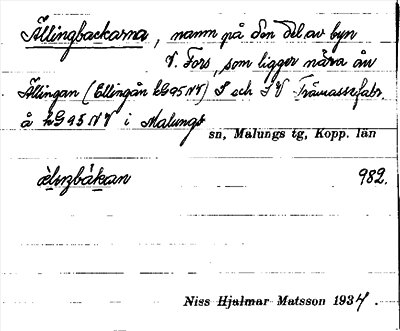 Ällingbackarna, namn på den del av byn
V. Fors, som ligger nära ån
Ällingan (Ellingån kG95NV) S och SV Trämassefabr.
å kG95NV i Malungs
sn, Malungs tg, Kopp. län
èlıŋbákan 982.
Niss Hjalmar Matsson 1934.